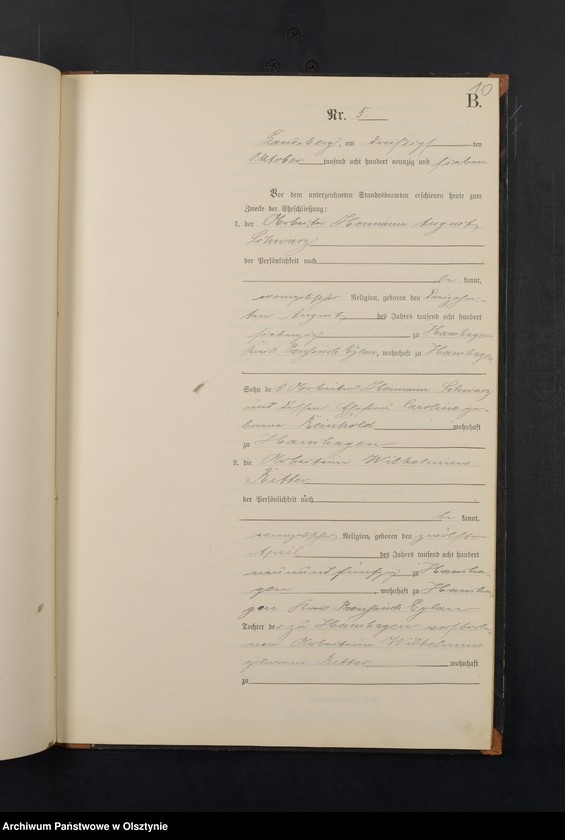 10
B.
Nr. 5.
Landsberg, am dreißigsten
Oktober tausend acht hundert neunzig und sieben.
Vor dem unterzeichneten Standesbeamten erschienen heute zum
Zwecke der Eheschließung:
1. der Arbeiter Hermann August
Schwarz
der Persönlichkeit nach
be kannt,
evangelischer Religion, geboren den
ten August des Jahres tausend acht hundert
siebenzig zu Hanshagen
Kreis Preußisch Eylau, wohnhaft zu Hanshagen
Sohn des Arbeiters Hermann Schwarz
und dessen Ehefrau Caroline ge-
borene Reinhold wohnhaft
zu Hanshagen
2. die Arbeiterin Wilhelmine
Ritter
der Persönlichkeit nach
be kannt,
evangelischer Religion, geboren den zwölften
April des Jahres tausend acht hundert
neunund fünfzig zu Hansha-
gen, wohnhaft zu Hansha-
gen Kreis Preußisch Eylau
Tochter der zu Hanshagen verstorbe-
nen Arbeiterin Wilhelmine
geborene Ritter wohnhaft
zu
Archiwum Państwowe w Olsztynie